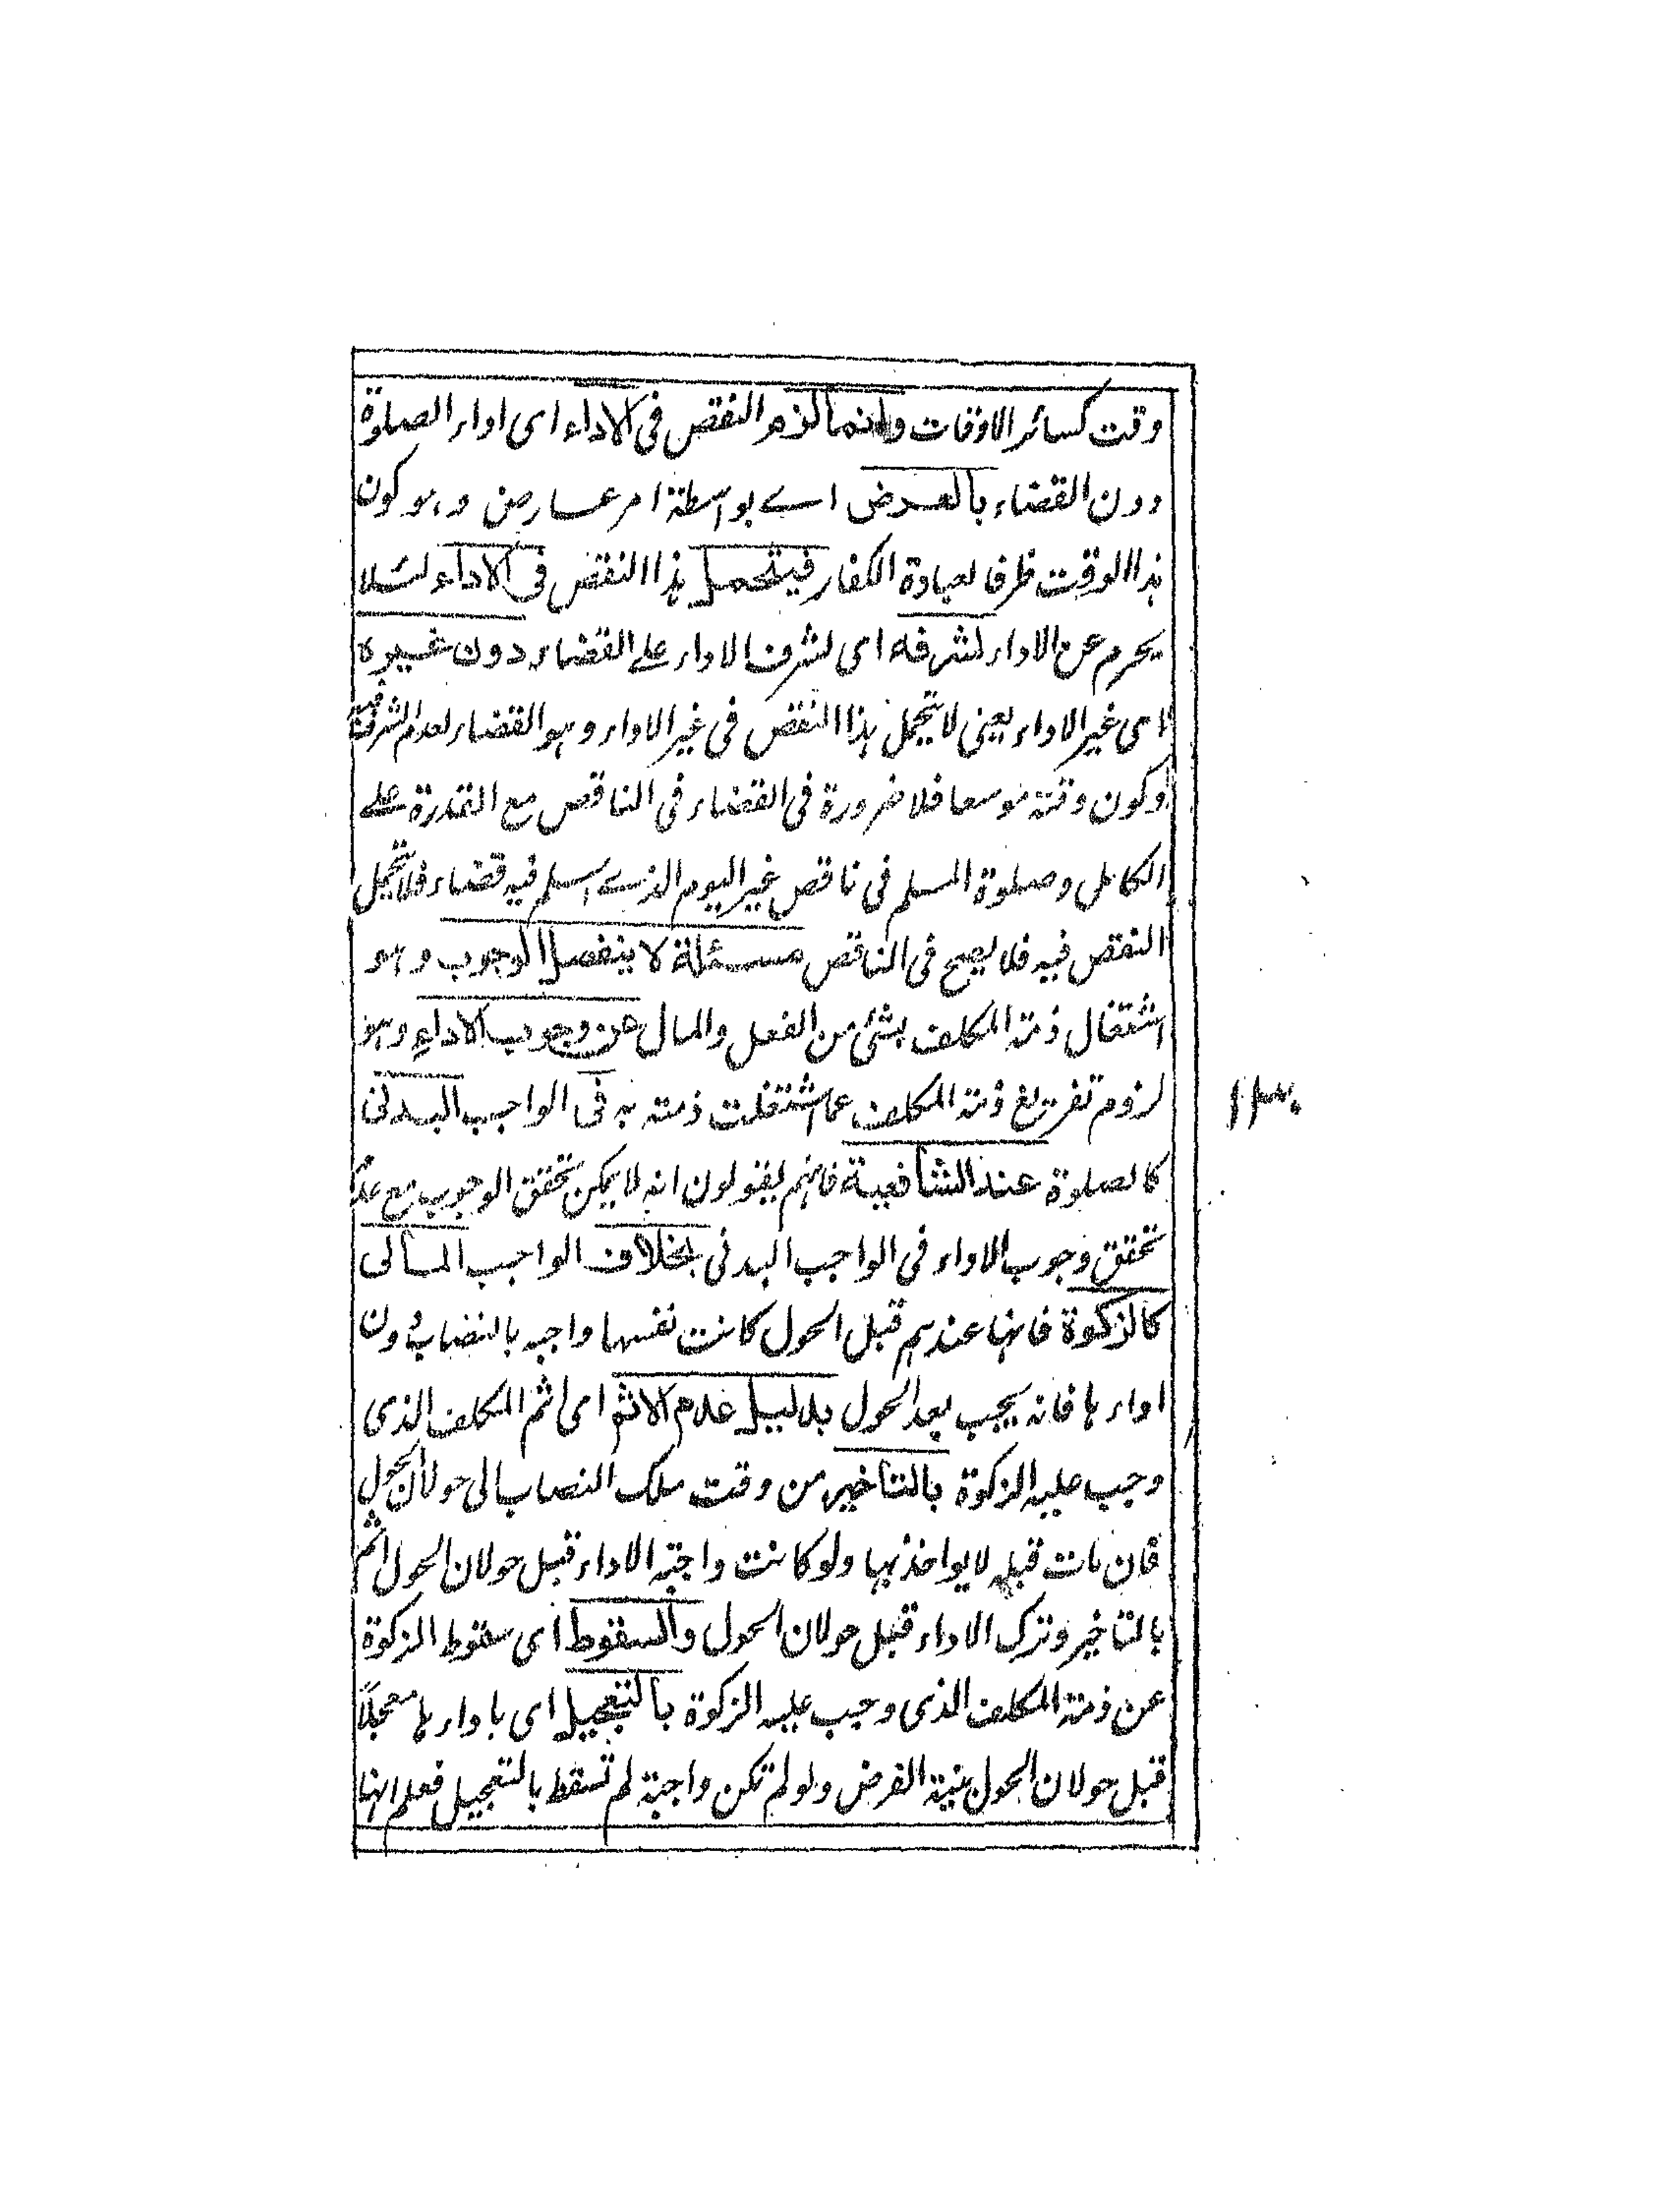 وقت كسائر الاوقات وانما لزم النقص فى الاداء اى اداء الصلوة
دون القضاء بالعرض اے بواسطة امر عارض وهو كون
هذا الوقت ظرفا لعبادة الكفار فيتحمل هذا النقص فى الاداء لئلا
يحرم عن الاداء لشرفه اى لشرف الاداء على القضاء دون غيره
اى غير الاداء يعنى لا يتحمل هذا النقص فى غير الاداء وهو القضاء لعدم الشرف فيه
وكون وقته موسعا فلا ضرورة فى القضاء فى الناقص مع القدرة على
الكامل وصلوة المسلم فى ناقص غير اليوم الذے اسلم فيه قضاء فلا يتحمل
النقص فيه فلا يصح فى الناقص مسئلة لا ينفصل الوجوب وهو
اشتغال ذمة المكلف بشئ من الفعل والمال عن وجوب الاداء وهو
لزوم تفريغ ذمة المكلف عما اشتغلت ذمته به فى الواجب البدنى
كالصلوة عند الشافعية فانهم يقولون انه لا يمكن تحقق الوجوب مع عدم
تحقق وجوب الاداء فى الواجب البدنى بخلاف الواجب المالى
كالزكوة فانها عندهم قبل الحول كانت نفسها واجبه بالنصاب دون
اداءها فانه يجب بعد الحول بدليل عدم الاثم اى اثم المكلف الذى
وجب عليه الزكوة بالتاخير من وقت ملك النصاب الى حولان الحول
فان مات قبله لا يواخذ بها ولو كانت واجبة الاداء قبل حولان الحول اثم
بالتاخير وترك الاداء قبل حولان الحول والسقوط اى سقوط الزكوة
عن ذمة المكلف الذى وجب عليه الزكوة بالتعجيل اى باداءها معجلاً
قبل حولان الحول بنية الفرض ولو لم تكن واجبة لم تسقط بالتعجيل فعلم انها